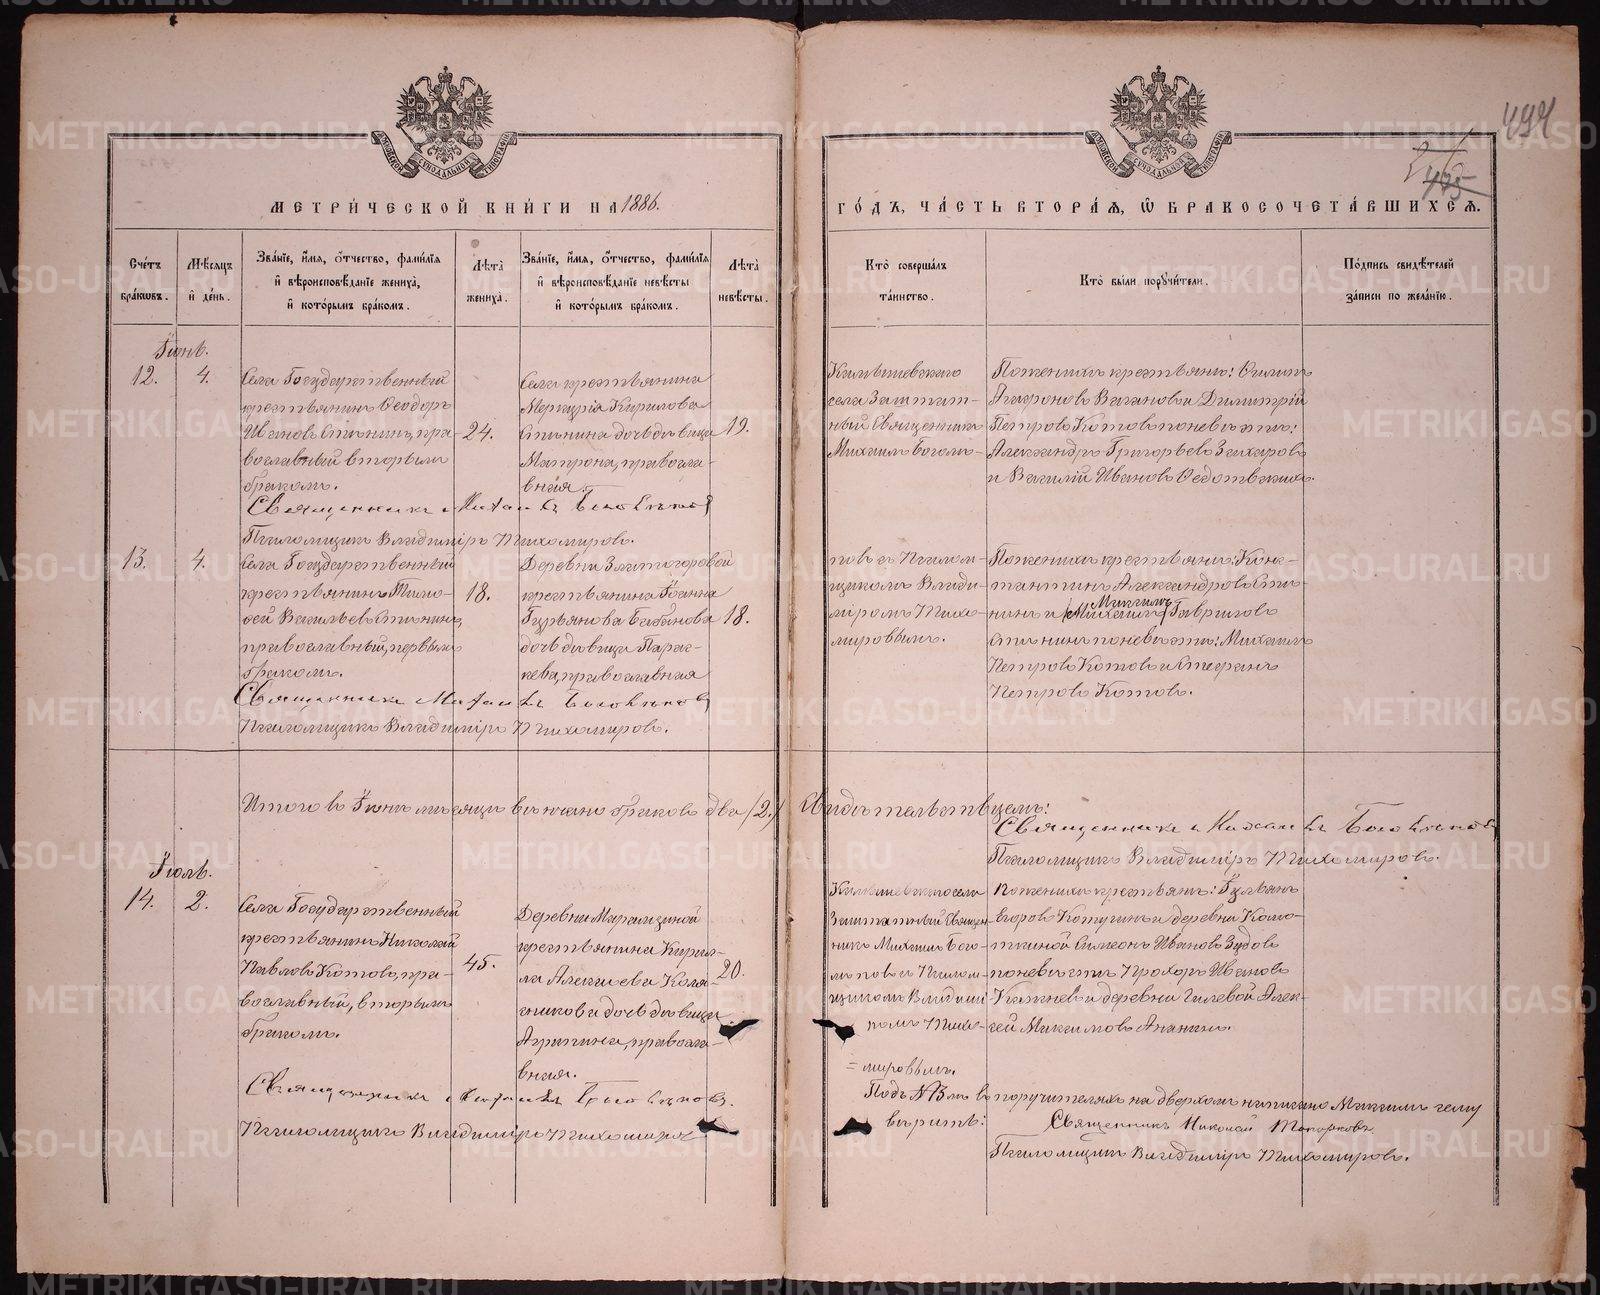 494
475
МЕТРИЧЕСКОЙ КНИГИ НА 1886.
ГОДЪ, ЧАСТЬ ВТОРАЯ, Ѡ БРАКОСОЧЕТАВШИХСЯ.
Счетъ браковъ.
Мѣсяцъ и день.
Званіе, имя, отчество, фамилія
и вѣроисповѣданіе жениха,
и которымъ бракомъ.
Лѣта жениха.
Званіе, имя, отчество, фамилія
и вѣроисповѣданіе невѣсты
и которымъ бракомъ.
Лѣта невѣсты.
Кто совершалъ
таинство.
Кто были поручители.
Подпись свидѣтелей
записи по желанію.
Іюнь.
12.
4.
Села Государственный
крестьянинъ Ѳеодоръ
Ивановъ Стининъ, пра-
вославный вторымъ
бракомъ.
24.
Села крестьянина
Меркурія Кирилова
Стинина дочь дѣвица
Матрона, правосла-
вная.
19.
села Заштат-
ный Священникъ
Михаилъ Боголѣ-
По женихѣ крестьяне: Филипъ
Агафоновъ Вагановъ и Димитрій
Петровъ Котовъ по невѣстѣ:
Александръ Григорьевъ Захаровъ
и Василій Ивановъ Ѳедотовскихъ.
Священникъ Михаилъ Боголѣповъ
Псаломщикъ Владиміръ Тихомировъ.
13.
4.
Села Государственный
крестьянинъ Тимо-
ѳей Васильевъ Стининъ,
православный, первымъ
бракомъ.
18.
Деревни Златогоровой
крестьянина Іоанна
Гурьянова Бабинова
дочь дѣвица Парас-
кева, православная
18.
повъ съ Псалом-
щикомъ Влади-
міромъ Тихо-
мировымъ.
По женихѣ крестьяне: Конс-
тантинъ Александровъ Сти-
нинъ и (Михаилъ) Гавриловъ
Максимъ
Стининъ по невѣстѣ: Михаилъ
Петровъ Котовъ и Стефанъ
Петровъ Котовъ.
Священникъ Михаилъ Боголѣповъ
Псаломщикъ Владиміръ Тихомировъ.
Итого въ Іюнѣ мѣсяцѣ вѣнчано браковъ два (2.) Свидѣтельствуемъ:
Священникъ Михаилъ Боголѣповъ
Псаломщикъ Владиміръ Тихомировъ.
Іюль.
14.
2.
Села Государственный
крестьянинъ Николай
Павловъ Котовъ, пра-
вославный, вторымъ
бракомъ.
45.
Деревни Марамзиной
крестьянина Кирил-
ла Алексѣева Коля-
сникова дочь дѣвица
Агрипина, правосла-
вная.
20.
села
Заштатный Священ-
никъ Михаилъ Бого-
лѣповъ съ Псалом-
щикомъ Владимі-
ромъ Тихо-
=мировымъ.
По женихѣ крестьяне:
Егоровъ и деревни
Симеонъ Ивановъ Зудовъ
по невѣстѣ Прохоръ Ивановъ
и деревни Гилевой Алек-
сѣй Максимовъ Ананьинъ.
Священникъ Михаилъ Боголѣповъ.
Псаломщикъ Владиміръ Тихомировъ
Подъ №13мъ въ поручителяхъ на двѣрхомъ написано Максимъ чему
вѣрить:
Священникъ Николай Топорковъ
Псаломщикъ Владиміръ Тихомировъ.
METRIKI.GASO-URAL.RU